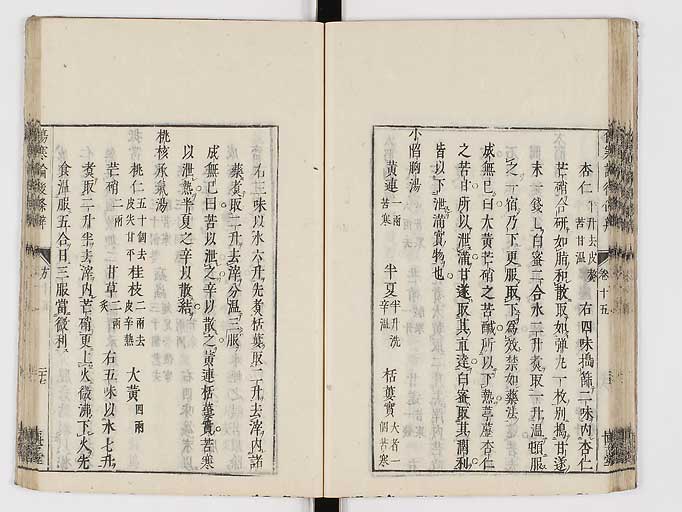 杏仁 半升去皮熬 苦甘溫 右四味搗篩二味內杏仁
芒硝合研如脂和散取如彈丸一枚別搗甘遂
末一錢匕白蜜二合水二升煮取一升溫頓服
之一宿乃下更服取下為效禁如藥法
成無已曰大黃芒硝之苦鹹所以下熱葶藶杏仁
之苦甘所以泄滿甘遂取其直達白蜜取其潤利
皆以下泄滿實物也
小陷胸湯
黃連 一兩 苦寒 半夏 半升洗 辛溫 栝蔞實 大者一個苦寒
右三味以水六升先煮栝蔞取三升去滓內諸
藥煮取二升去滓分溫三服
成無已曰苦以泄之辛以散之黃連栝蔞實苦寒
以泄熱半夏之辛以散結
桃核承氣湯
桃仁 五十個去皮尖甘平 桂枝 二兩去皮辛熱 大黃 四兩
芒硝 二兩 甘草 二兩炙 右五味以水七升
煮取二升半去滓內芒硝更上火微沸下火先
食溫服五合日三服當微利
傷寒論後條辨 方
卷十五